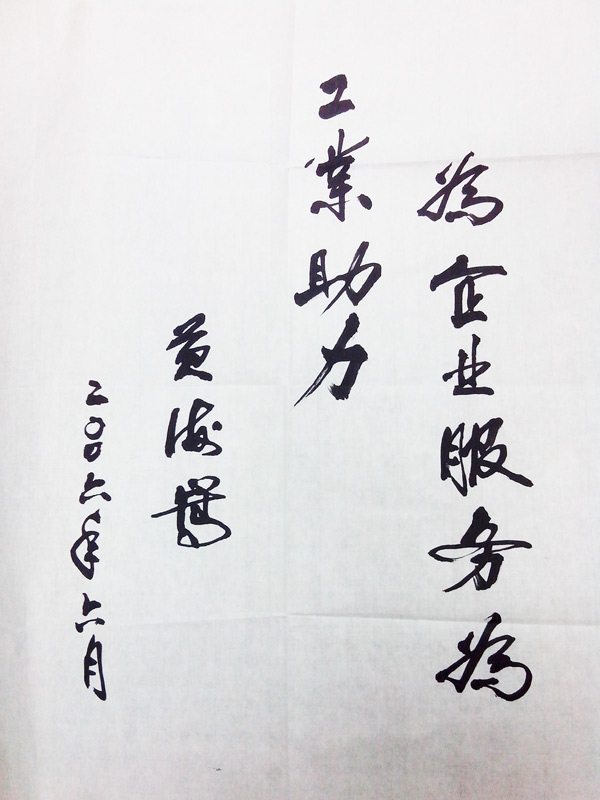 為企业服务為
工業助力
黄海嵩
二〇〇六年六月